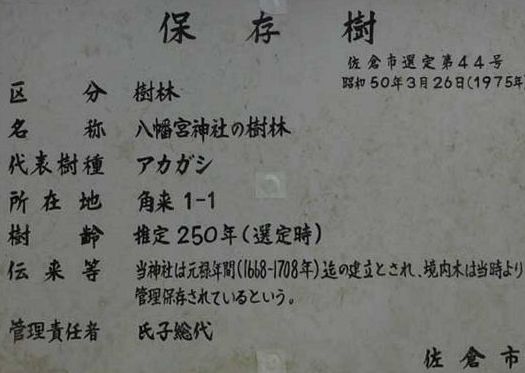 保存樹
佐倉市選定第44号
昭和50年3月26日(1975年
区分 樹林
名称 八幡宮神社の樹林
代表樹種 アカガシ
所在地 角来1-1
樹齢 推定250年(選定時)
伝来等 当神社は元禄年間(1668-1708年)迄の建立とされ、境内木は当時より
管理保存されているという。
管理責任者 氏子総代
佐倉市